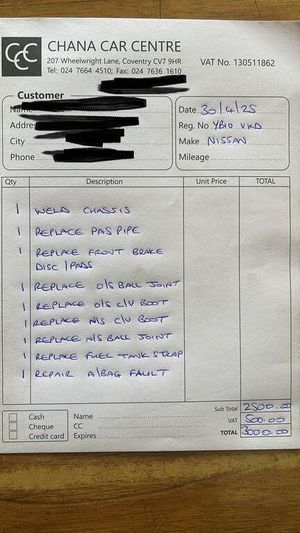 CCC CHANA CAR CENTRE
207 Wheelwright Lane, Coventry CV7 9HR
Tel: 024 7664 4510; Fax: 024 7636 1610
VAT No. 130511862
Customer
Name
Address
City
Phone
Date 30/4/25
Reg. No YB10 VKD
Make NISSAN
Mileage
Qty Description Unit Price TOTAL
1 WELD CHASSIS
1 REPLACE PAS PIPE
1 REPLACE FRONT BRAKE
DISC / PADS
1 REPLACE O/S BALL JOINT
1 REPLACE O/S C/V BOOT
1 REPLACE N/S C/V BOOT
1 REPLACE N/S BALL JOINT
1 REPLACE FUEL TANK STRAP
1 REPAIR A/BAG FAULT
Sub Total 2500.00
VAT 500.00
TOTAL 3000.00
Cash
Cheque
Credit card
Name
CC
Expires